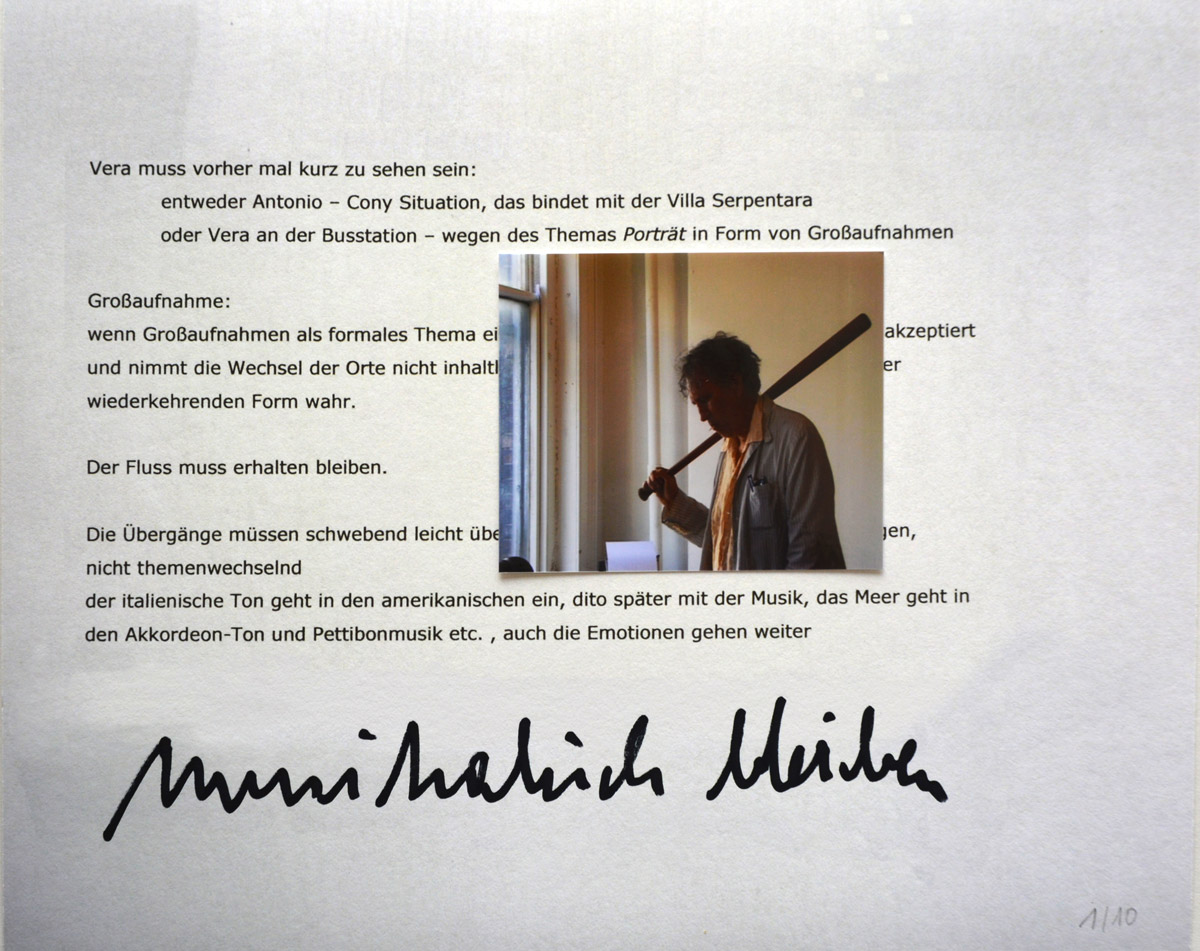 Vera muss vorher mal kurz zu sehen sein:
entweder Antonio – Cony Situation, das bindet mit der Villa Serpentara
oder Vera an der Busstation – wegen des Themas Porträt in Form von Großaufnahmen
Großaufnahme:
wenn Großaufnahmen als formales Thema ei akzeptiert
und nimmt die Wechsel der Orte nicht inhaltl er
wiederkehrenden Form wahr.
Der Fluss muss erhalten bleiben.
Die Übergänge müssen schwebend leicht übe gen,
nicht themenwechselnd
der italienische Ton geht in den amerikanischen ein, dito später mit der Musik, das Meer geht in
den Akkordeon-Ton und Pettibonmusik etc. , auch die Emotionen gehen weiter
musikalisch bleiben
1/10